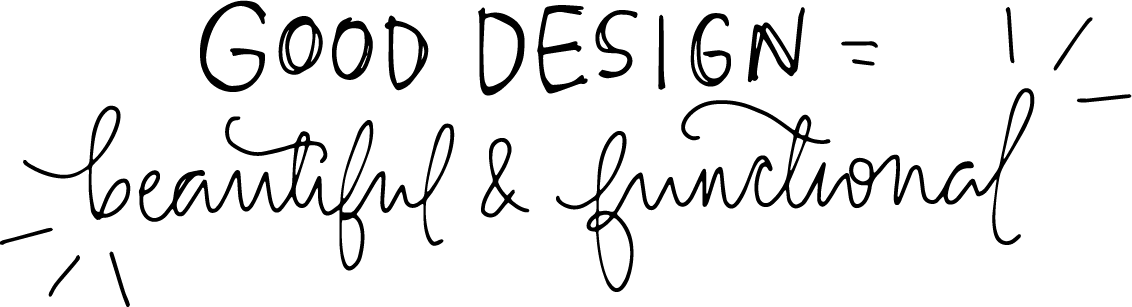 GOOD DESIGN =
beautiful & functional